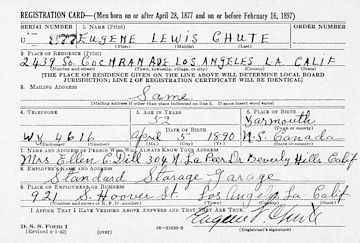 REGISTRATION CARD—(Men born on or after April 28, 1877 and on or before February 16, 1897)
SERIAL NUMBER 1. NAME (Print) ORDER NUMBER
U 1877 EUGENE LEWIS CHUTE
(First) (Middle) (Last)
2. PLACE OF RESIDENCE (Print)
2439 So. COCHRAN AVE LOS ANGELES L.A. CALIF
(Number and street) (Town, township, village, or city) (County) (State)
[THE PLACE OF RESIDENCE GIVEN ON THE LINE ABOVE WILL DETERMINE LOCAL BOARD
JURISDICTION; LINE 2 OF REGISTRATION CERTIFICATE WILL BE IDENTICAL]
3. MAILING ADDRESS
Same
[Mailing address if other than place indicated on line 2. If same insert word same]
4. TELEPHONE 5. AGE IN YEARS 6. PLACE OF BIRTH
52 Yarmouth
DATE OF BIRTH (Town or county)
WY 4616 April 5 1890 N.S. Canada
(Exchange) (Number) (Mo.) (Day) (Yr.) (State or country)
7. NAME AND ADDRESS OF PERSON WHO WILL ALWAYS KNOW YOUR ADDRESS
Mrs Ellen C. Dill 304 N. La Peer Dr Beverly Hills Calif
8. EMPLOYER'S NAME AND ADDRESS
Standard Storage Garage
9. PLACE OF EMPLOYMENT OR BUSINESS
921 S. Hoover St. Los Angeles La. Calif.
(Number and street or R. F. D. number) (Town) (County) (State)
I AFFIRM THAT I HAVE VERIFIED ABOVE ANSWERS AND THAT THEY ARE TRUE.
D. S. S. Form 1
(Revised 4-1-42) (over) 16—21630-2 Eugene L Chute
(Registrant's signature)